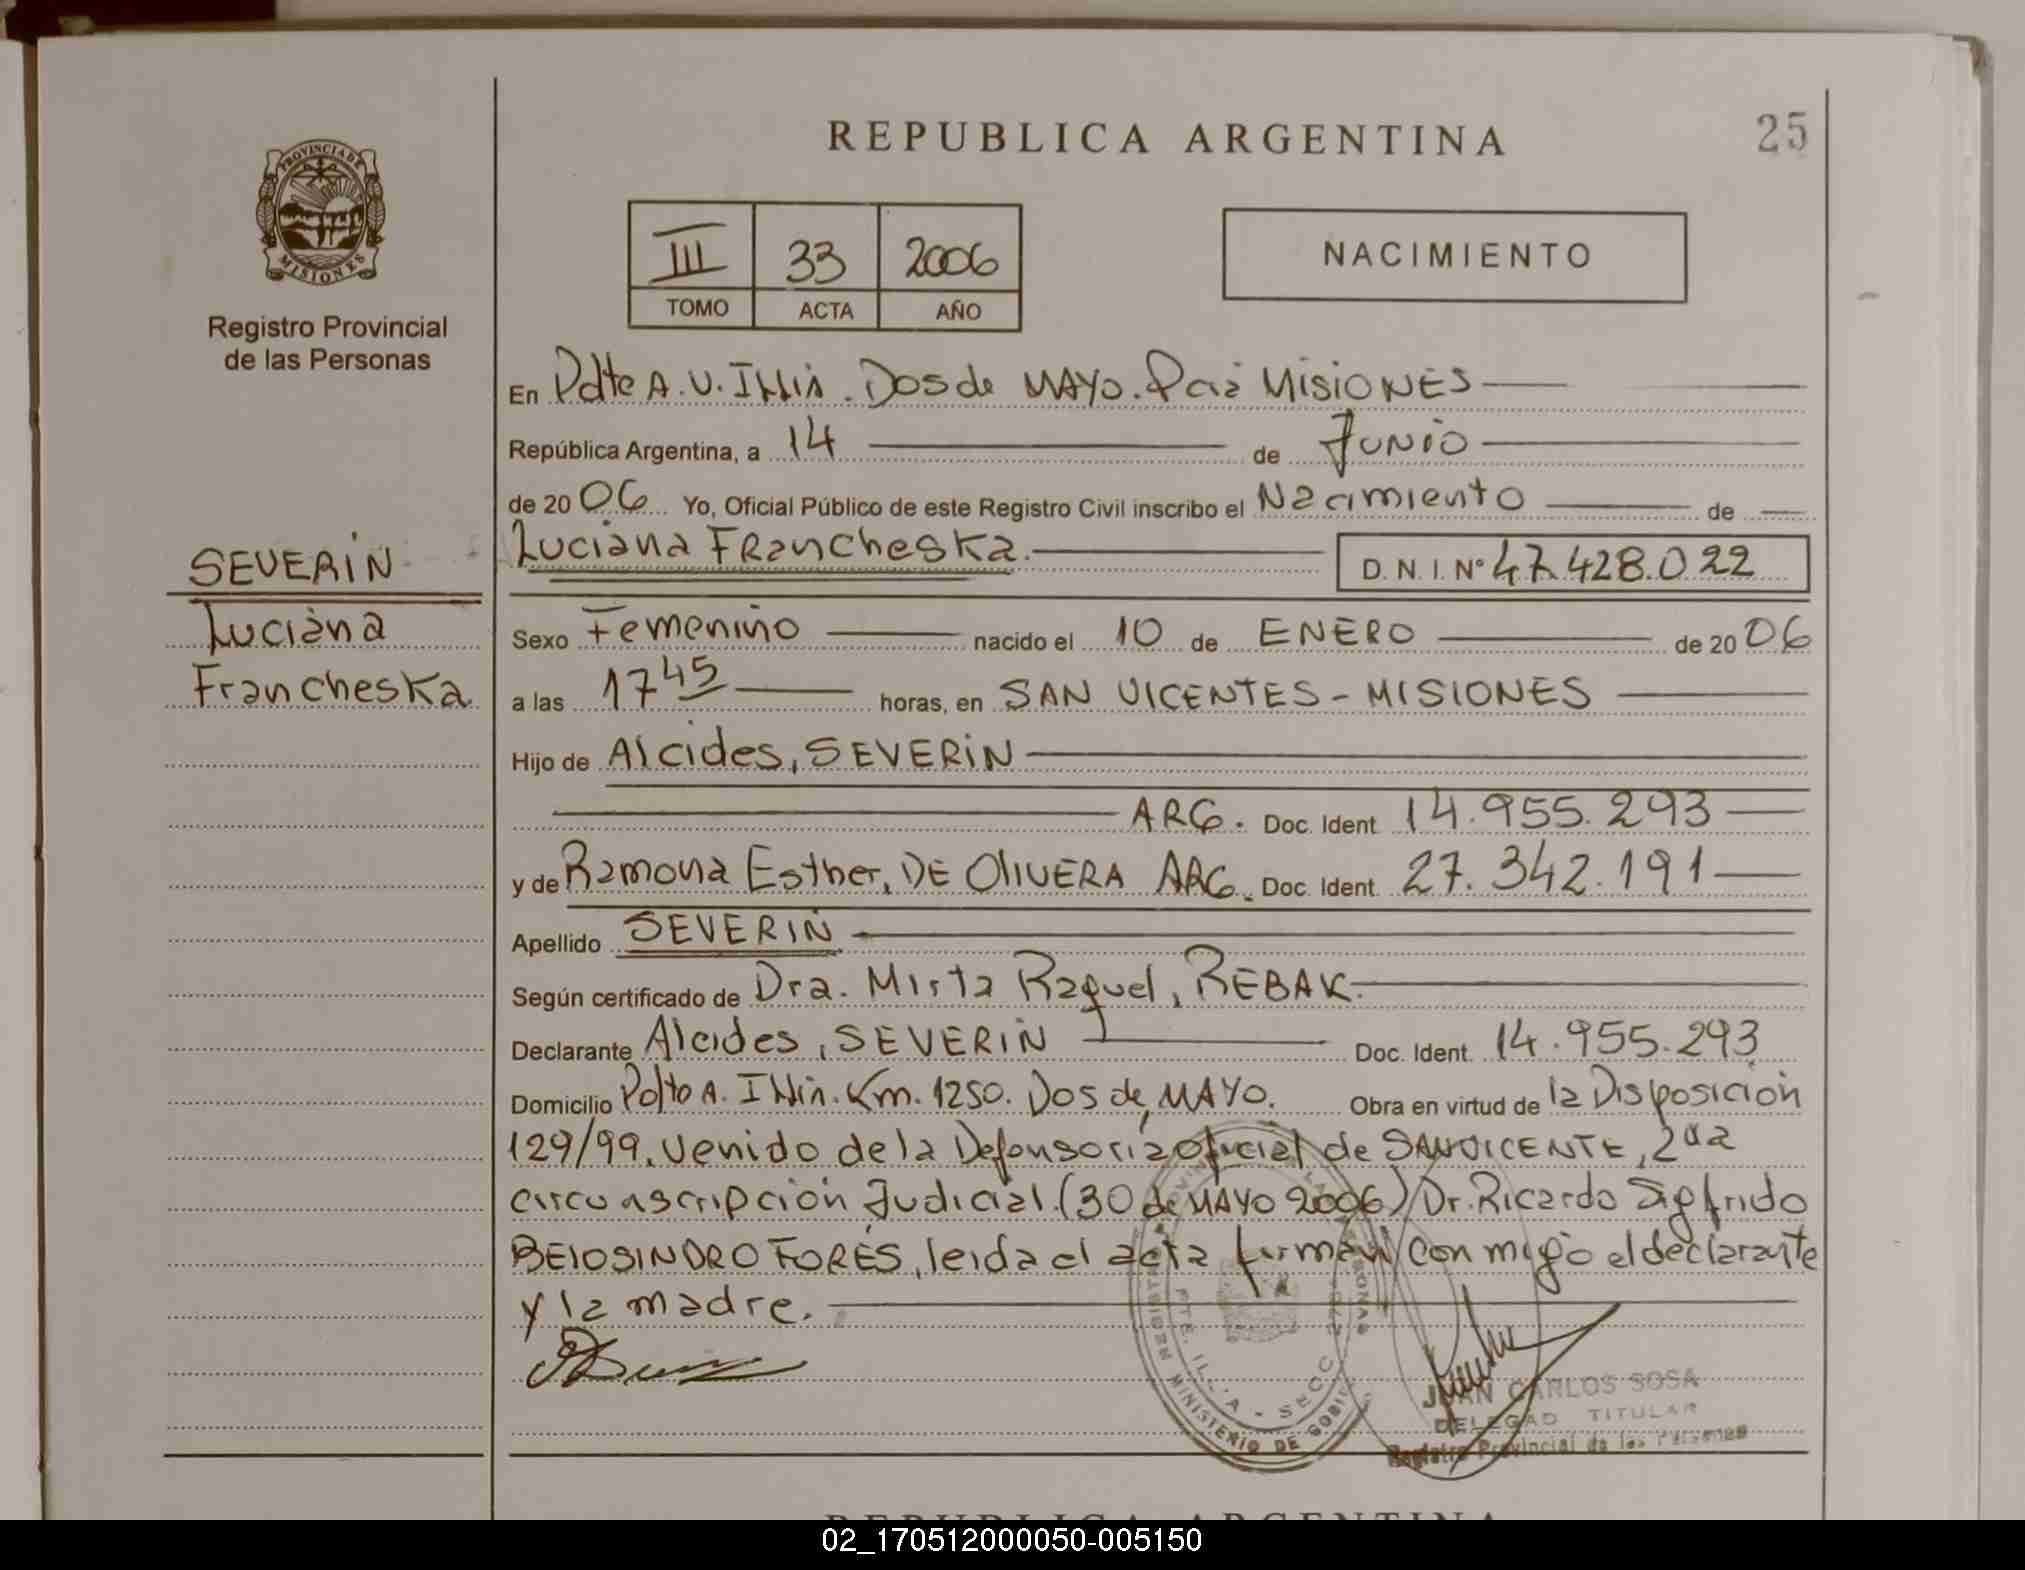 REPUBLICA ARGENTINA
25
PROVINCIA DE
MISIONES
Registro Provincial
de las Personas
III 33 2006
TOMO ACTA AÑO
NACIMIENTO
En Pdte A. U. Illia. Dos de MAYO. Misiones
República Argentina, a 14 de Junio
de 2006 Yo, Oficial Público de este Registro Civil inscribo el Nacimiento de
Luciana Francheska.
D. N. I. N° 47.428.022
SEVERIN
Luciana
Francheska
Sexo Femenino nacido el 10 de ENERO de 2006
a las 17 45 horas, en SAN VICENTES - MISIONES
Hijo de Alcides, SEVERIN
ARG. Doc. Ident. 14.955.293
y de Ramona Esther, DE OliVERA ARG. Doc. Ident. 27.342.191
Apellido SEVERIN
Según certificado de Dra. Mirta Raquel, REBAK.
Declarante Alcides, SEVERIN Doc. Ident. 14.955.293
Domicilio Pdto A. Illia. Km. 1250. Dos de MAYO. Obra en virtud de la Disposición
129/99, venido de la Defensoria oficial de SAN VICENTE, 2da
circunscripción Judicial (30 de MAYO 2006) Dr. Ricardo Sigfrido
BEIOSINDRO FORÉS, leida el acta firman con migo el declarante
y la madre.
MINISTERIO DE GOBI
PTE. ILLIA - SECC
JUAN CARLOS SOSA
DELEGAD TITULAR
Registro Provincial de las Personas
REPUBLICA ARGENTINA
02_170512000050-005150